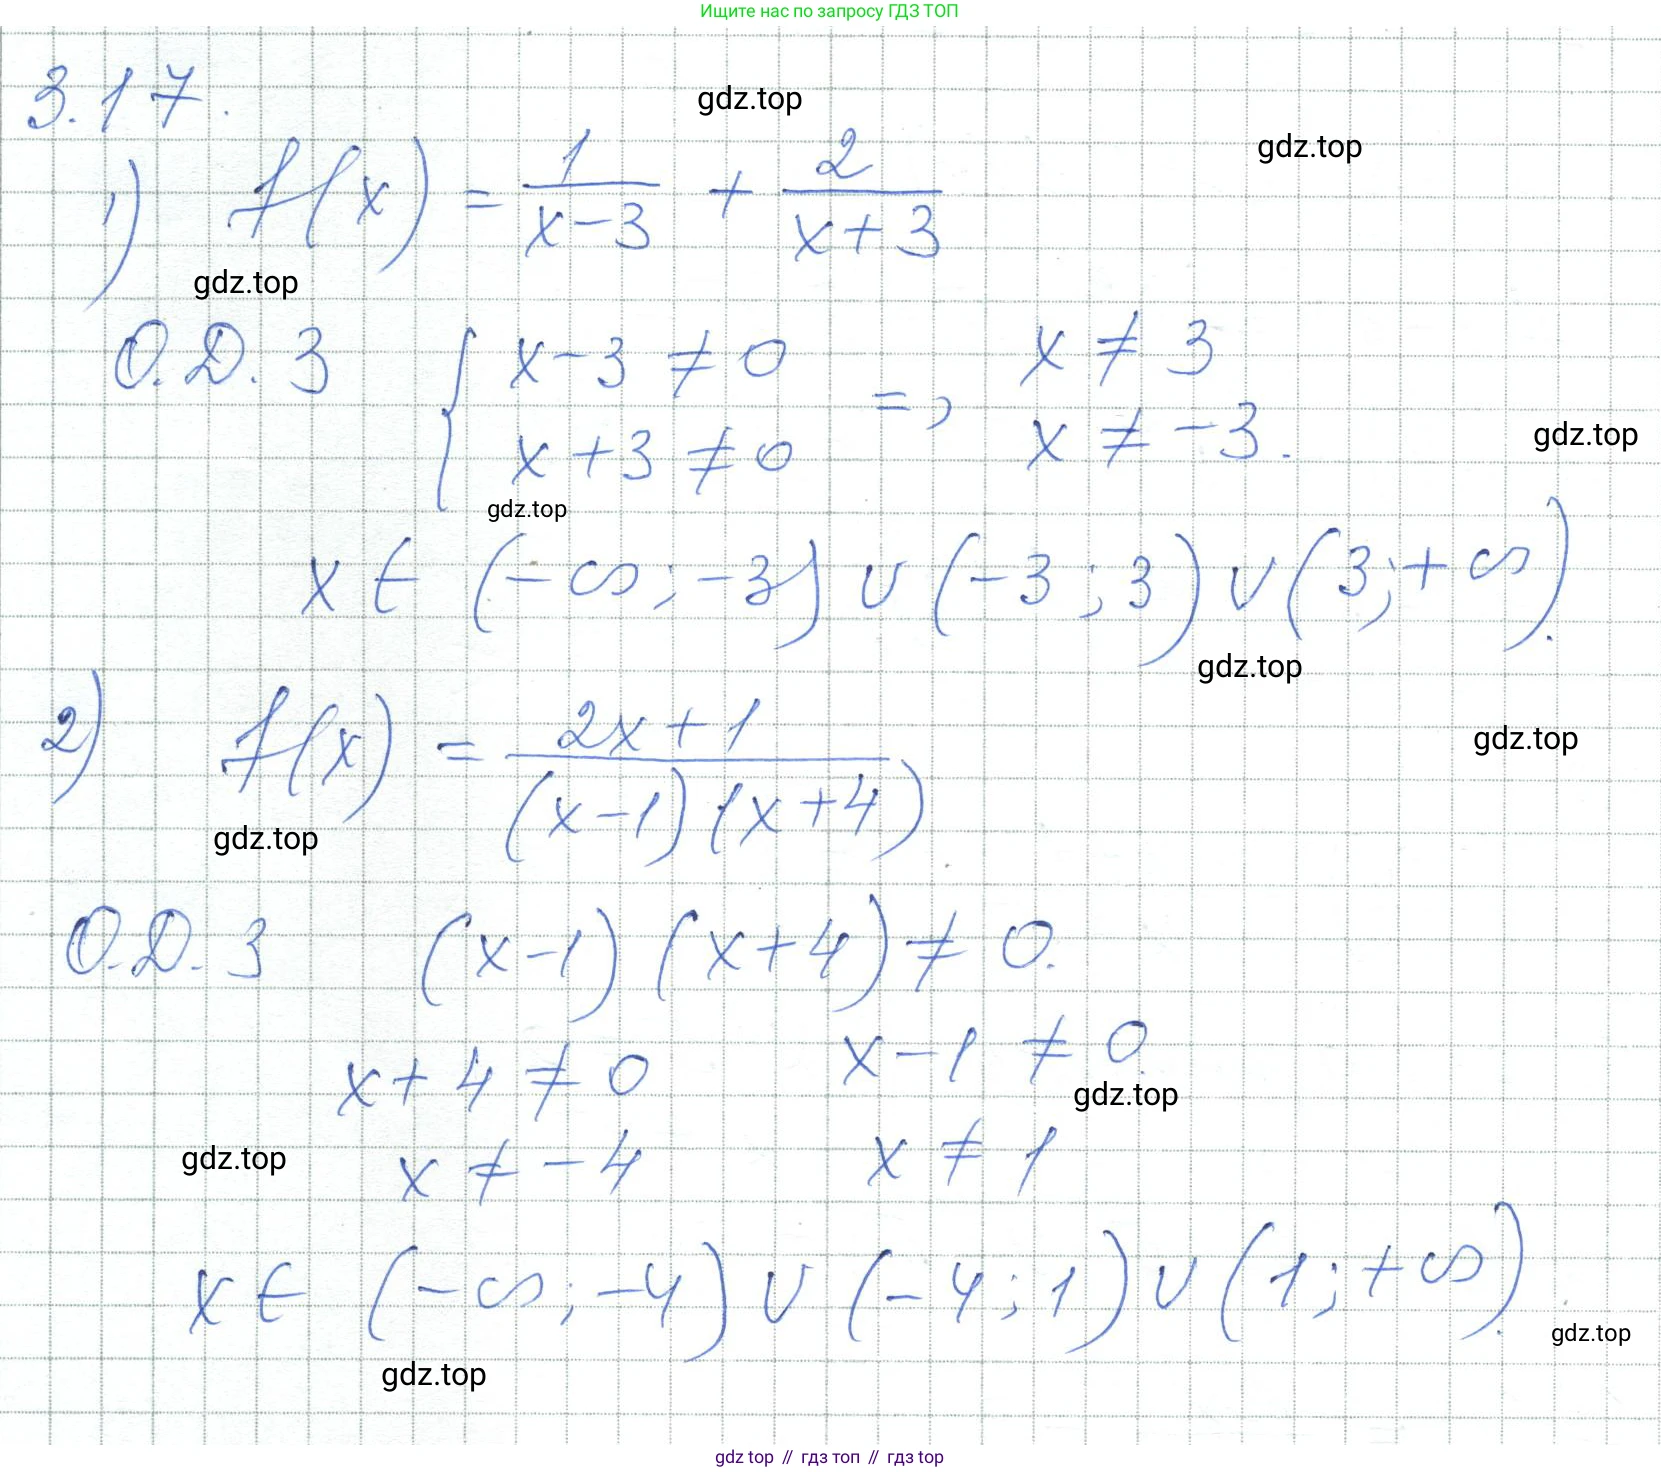 Ищите нас по запросу ГДЗ ТОП
3.17.
gdz.top
gdz.top
1) f(x) = 1/(x-3) + 2/(x+3)
gdz.top
О.Д.З { x-3 ≠ 0 => x ≠ 3
x+3 ≠ 0 x ≠ -3.
gdz.top
gdz.top
x ∈ (-∞; -3) ∪ (-3; 3) ∪ (3; +∞).
gdz.top
2) f(x) = (2x+1)/((x-1)(x+4))
gdz.top
gdz.top
О.Д.З (x-1)(x+4) ≠ 0.
x+4 ≠ 0 x-1 ≠ 0.
gdz.top
gdz.top
x ≠ -4 x ≠ 1
x ∈ (-∞; -4) ∪ (-4; 1) ∪ (1; +∞).
gdz.top
gdz.top
gdz top // гдз топ // gdz top